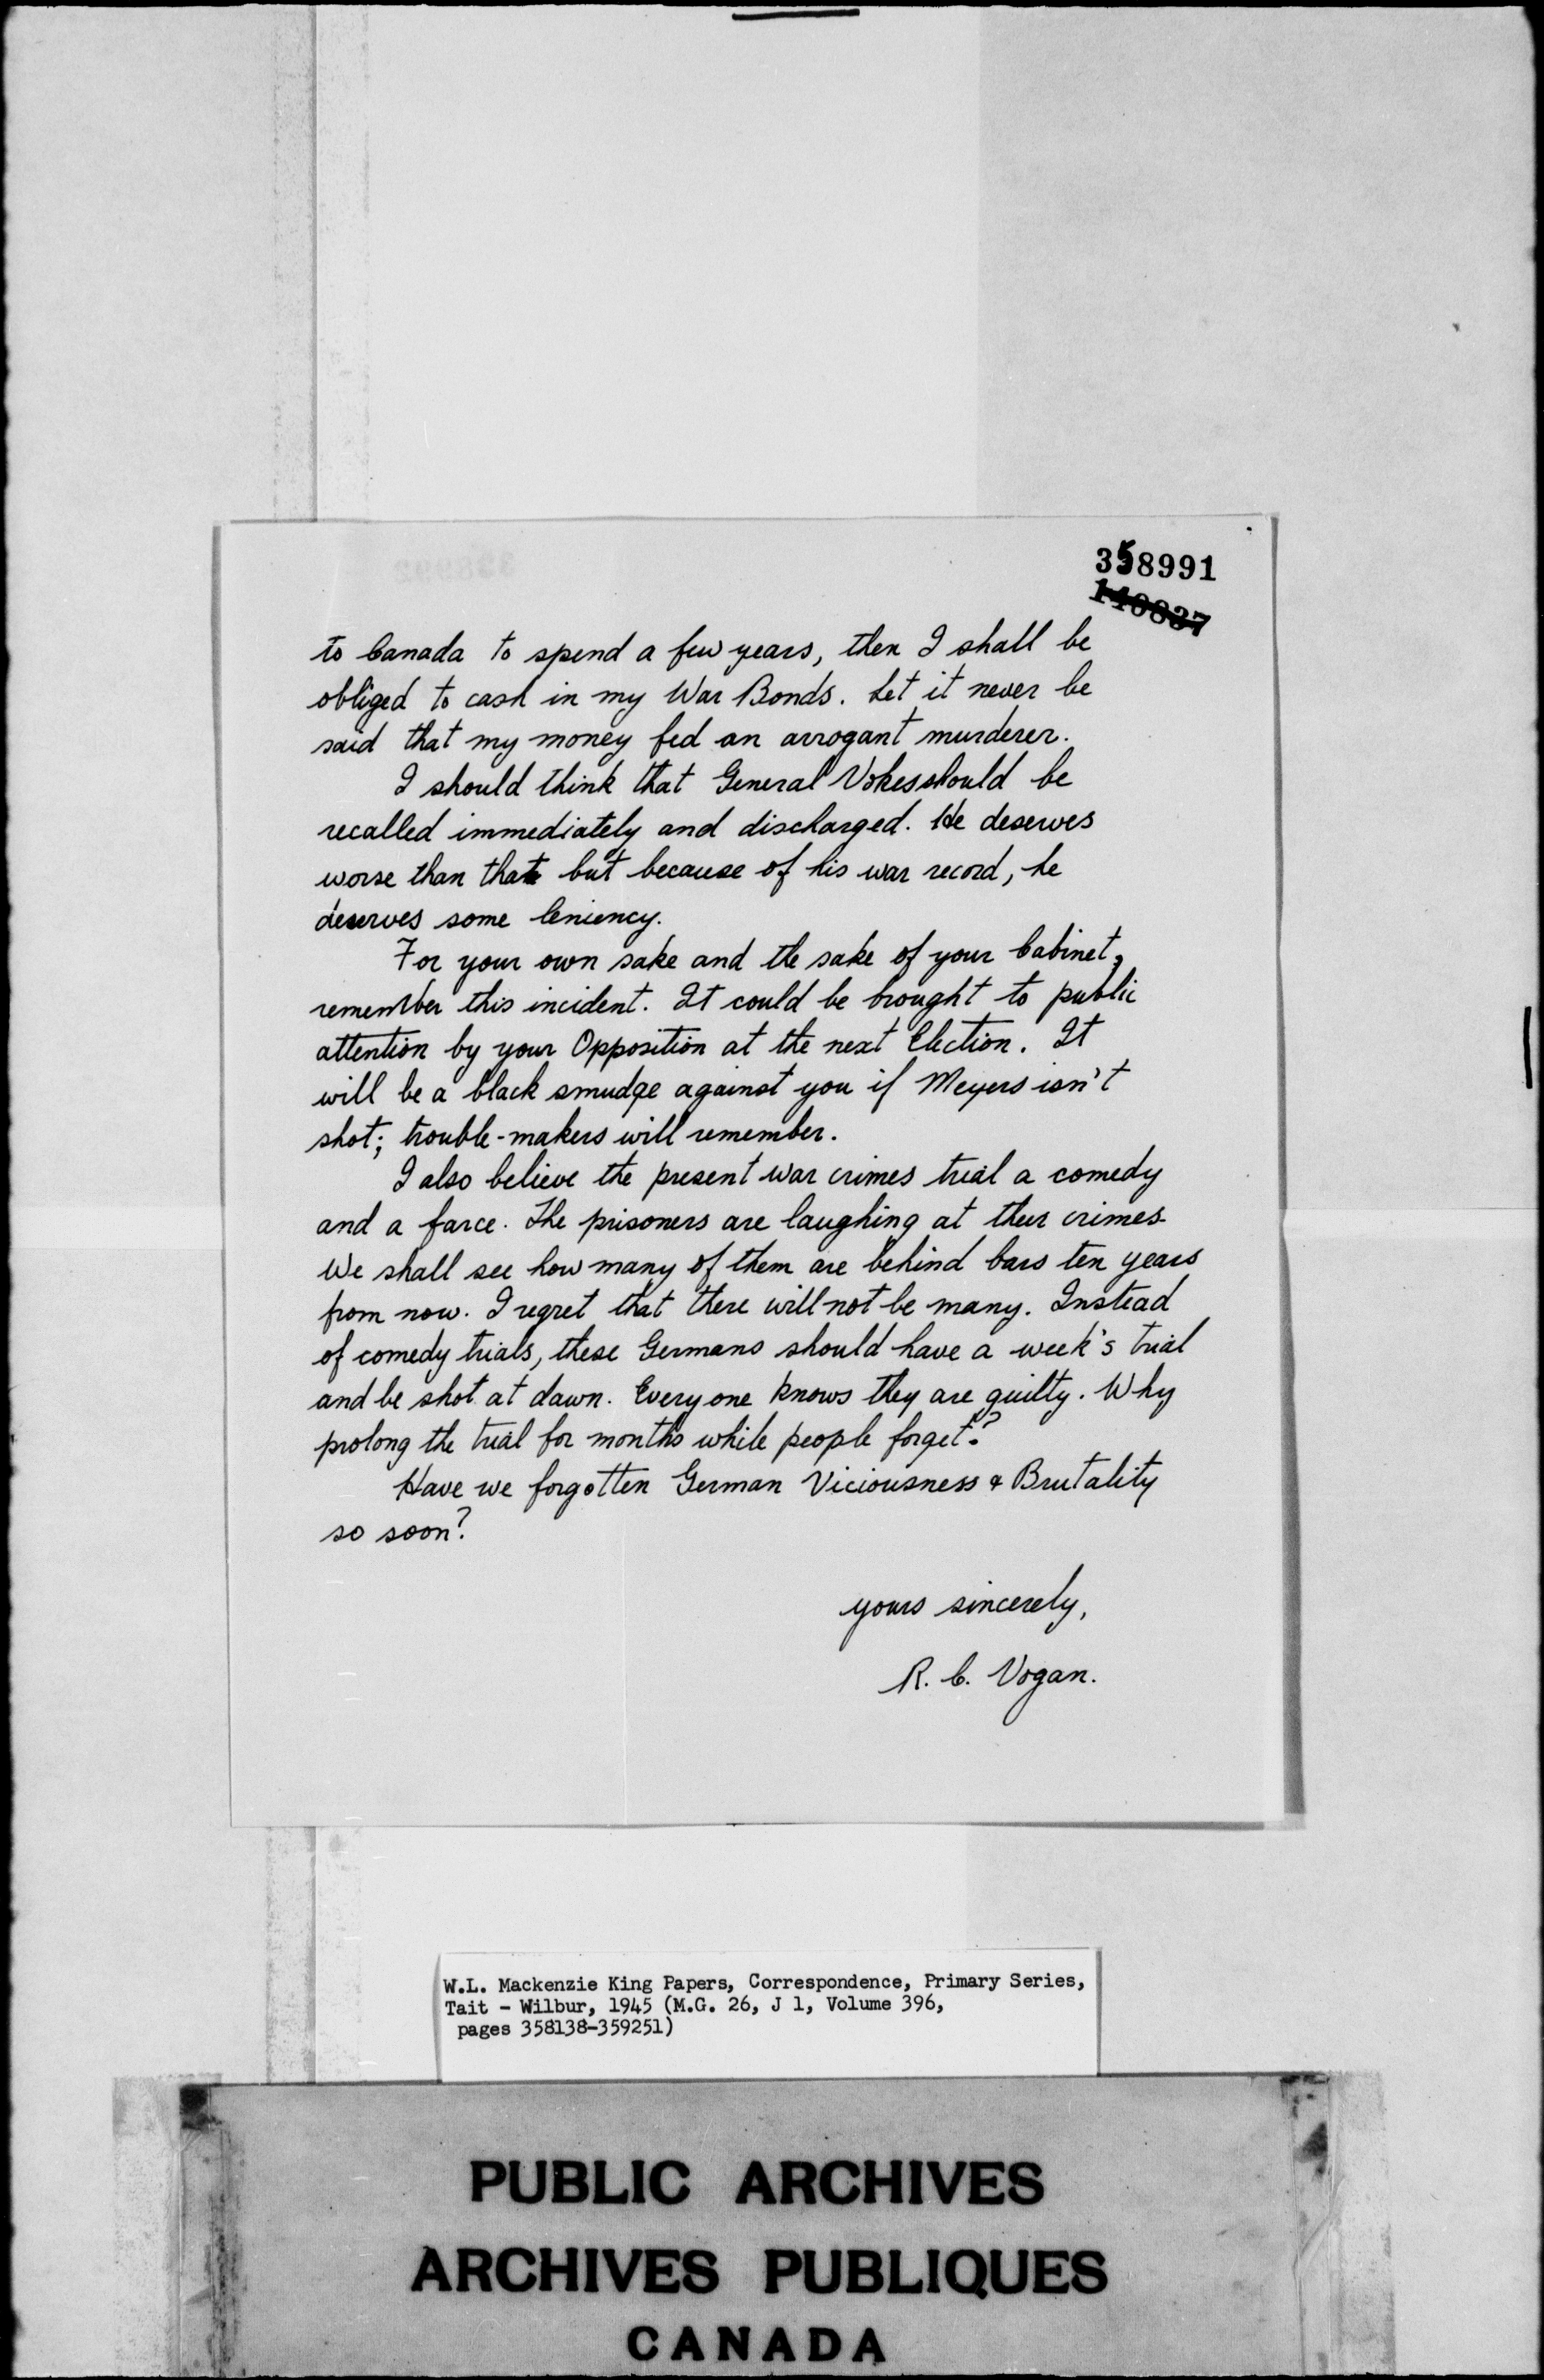 358991
140837
to Canada to spend a few years, then I shall be
obliged to cash in my War Bonds. Let it never be
said that my money fed an arrogant murderer.
I should think that General Vokes should be
recalled immediately and discharged. He deserves
worse than that but because of his war record, he
deserves some leniency.
For your own sake and the sake of your Cabinet,
remember this incident. It could be brought to public
attention by your Opposition at the next Election. It
will be a black smudge against you if Meyers isn't
shot; trouble-makers will remember.
I also believe the present war crimes trial a comedy
and a farce. The prisoners are laughing at their crimes.
We shall see how many of them are behind bars ten years
from now. I regret that there will not be many. Instead
of comedy trials, these Germans should have a week's trial
and be shot at dawn. Every one knows they are guilty. Why
prolong the trial for months while people forget?
Have we forgotten German Viciousness & Brutality
so soon?
yours sincerely,
R. C. Vogan.
W.L. Mackenzie King Papers, Correspondence, Primary Series,
Tait - Wilbur, 1945 (M.G. 26, J 1, Volume 396,
pages 358138-359251)
PUBLIC ARCHIVES
ARCHIVES PUBLIQUES
CANADA